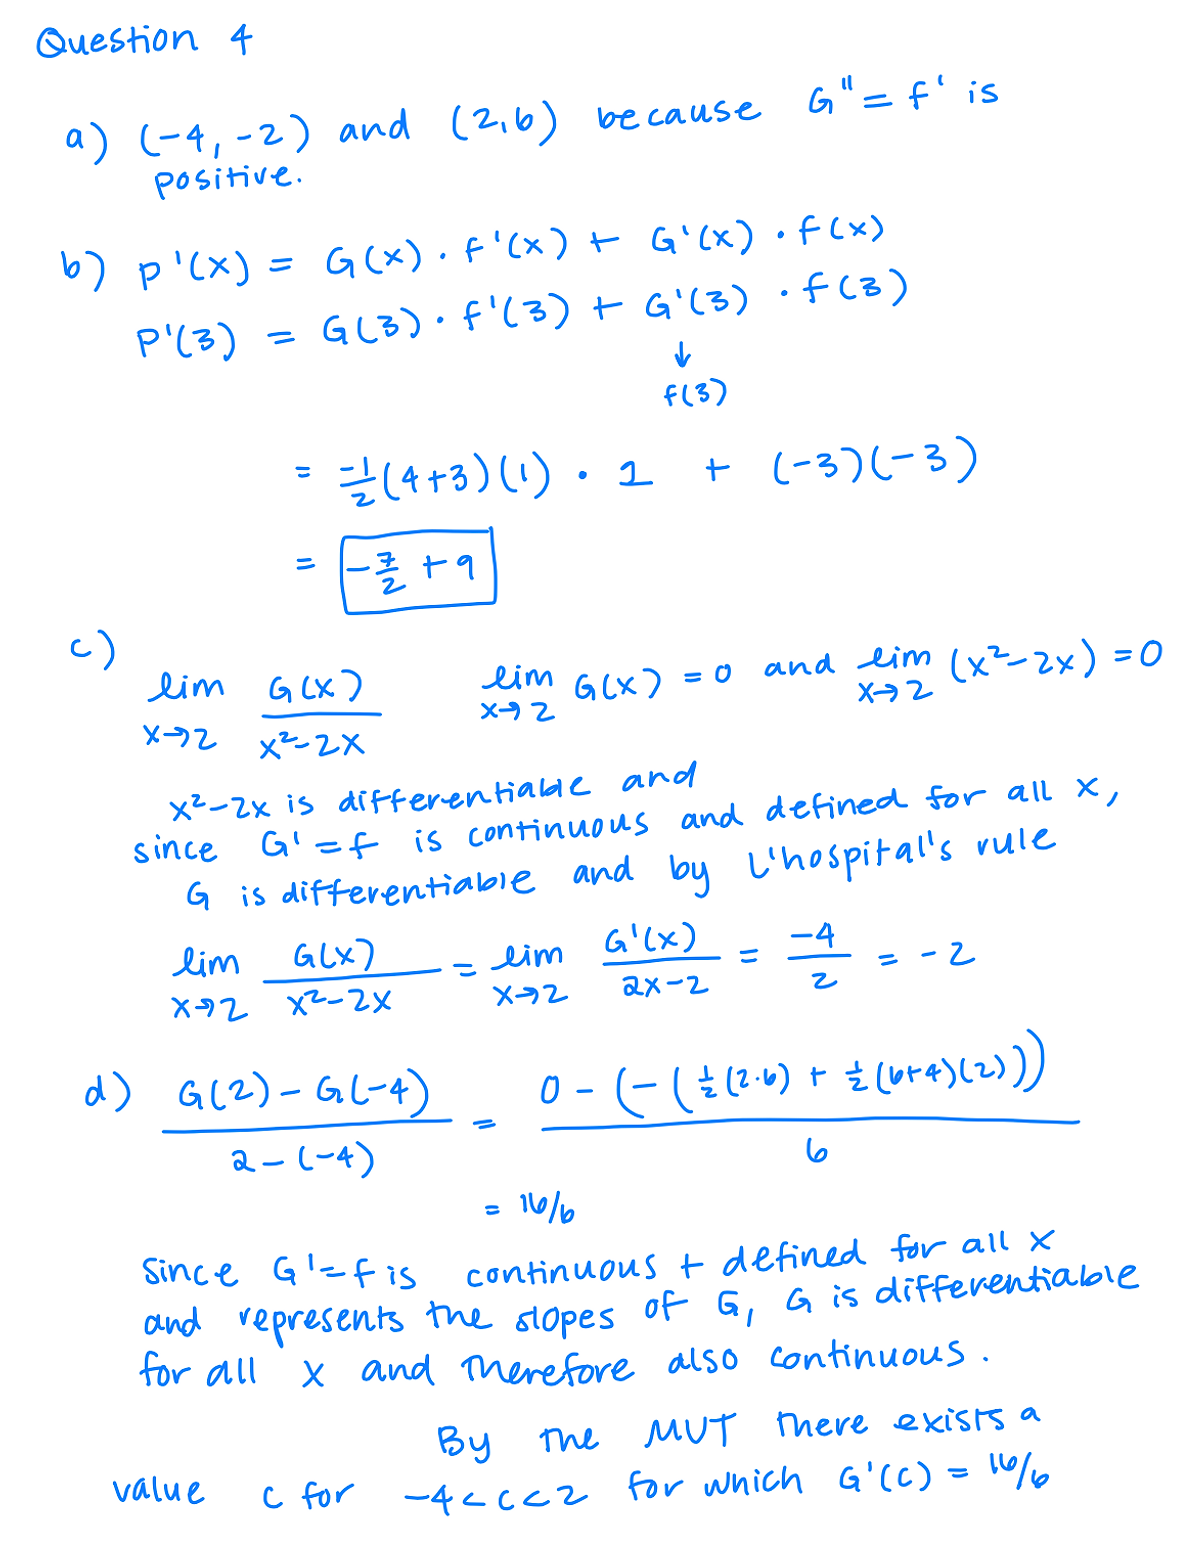 Question 4
a) (-4, -2) and (2,6) because G'' = f' is
positive.
b) p'(x) = G(x) · f'(x) + G'(x) · f(x)
p'(3) = G(3) · f'(3) + G'(3) · f(3)
↓
f(3)
= -1/2 (4+3)(1) · 1 + (-3)(-3)
= -7/2 + 9
c)
lim x→2 G(x)/(x²-2x) lim x→2 G(x) = 0 and lim x→2 (x²-2x) = 0
x²-2x is differentiable and
since G' = f is continuous and defined for all x,
G is differentiable and by L'hospital's rule
lim x→2 G(x)/(x²-2x) = lim x→2 G'(x)/(2x-2) = -4/2 = -2
d) (G(2) - G(-4))/(2-(-4)) = (0 - (-(1/2(2·6) + 1/2(6+4)(2))))/6
= 16/6
Since G' = f is continuous + defined for all x
and represents the slopes of G, G is differentiable
for all x and therefore also continuous.
By the MVT there exists a
value c for -4 < c < 2 for which G'(c) = 16/6